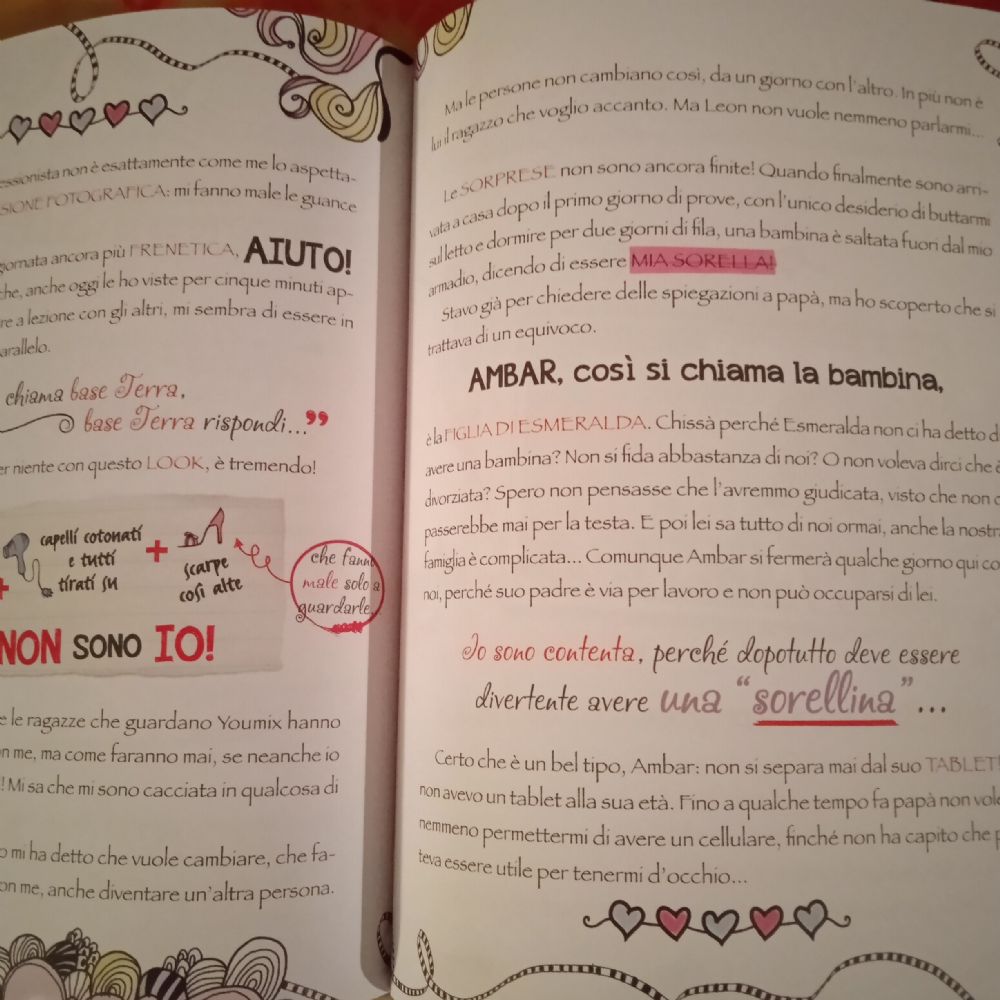 essionista non è esattamente come me lo aspetta-
SIONE FOTOGRAFICA: mi fanno male le guance
giornata ancora più FRENETICA, AIUTO!
che, anche oggi le ho viste per cinque minuti ap-
re a lezione con gli altri, mi sembra di essere in
arallelo.
chiama base Terra,
base Terra rispondi...”
er niente con questo LOOK, è tremendo!
capelli cotonati
e tutti
tirati su
+
scarpe
così alte
che fanno
male solo a
guardarle...
NON SONO IO!
e le ragazze che guardano Youmix hanno
n me, ma come faranno mai, se neanche io
! Mi sa che mi sono cacciata in qualcosa di
o mi ha detto che vuole cambiare, che fa-
on me, anche diventare un'altra persona.
Ma le persone non cambiano così, da un giorno con l'altro. In più non è
lui il ragazzo che voglio accanto. Ma Leon non vuole nemmeno parlarmi...
Le SORPRESE non sono ancora finite! Quando finalmente sono arri-
vata a casa dopo il primo giorno di prove, con l'unico desiderio di buttarmi
sul letto e dormire per due giorni di fila, una bambina è saltata fuori dal mio
armadio, dicendo di essere MIA SORELLA!
Stavo già per chiedere delle spiegazioni a papà, ma ho scoperto che si
trattava di un equivoco.
AMBAR, così si chiama la bambina,
è la FIGLIA DI ESMERALDA. Chissà perché Esmeralda non ci ha detto d
avere una bambina? Non si fida abbastanza di noi? O non voleva dirci che è
divorziata? Spero non pensasse che l'avremmo giudicata, visto che non c
passerebbe mai per la testa. E poi lei sa tutto di noi ormai, anche la nostra
famiglia è complicata... Comunque Ambar si fermerà qualche giorno qui co
noi, perché suo padre è via per lavoro e non può occuparsi di lei.
Io sono contenta, perché dopotutto deve essere
divertente avere una “sorellina”...
Certo che è un bel tipo, Ambar: non si separa mai dal suo TABLET!
non avevo un tablet alla sua età. Fino a qualche tempo fa papà non vole
nemmeno permettermi di avere un cellulare, finché non ha capito che p
teva essere utile per tenermi d'occhio...